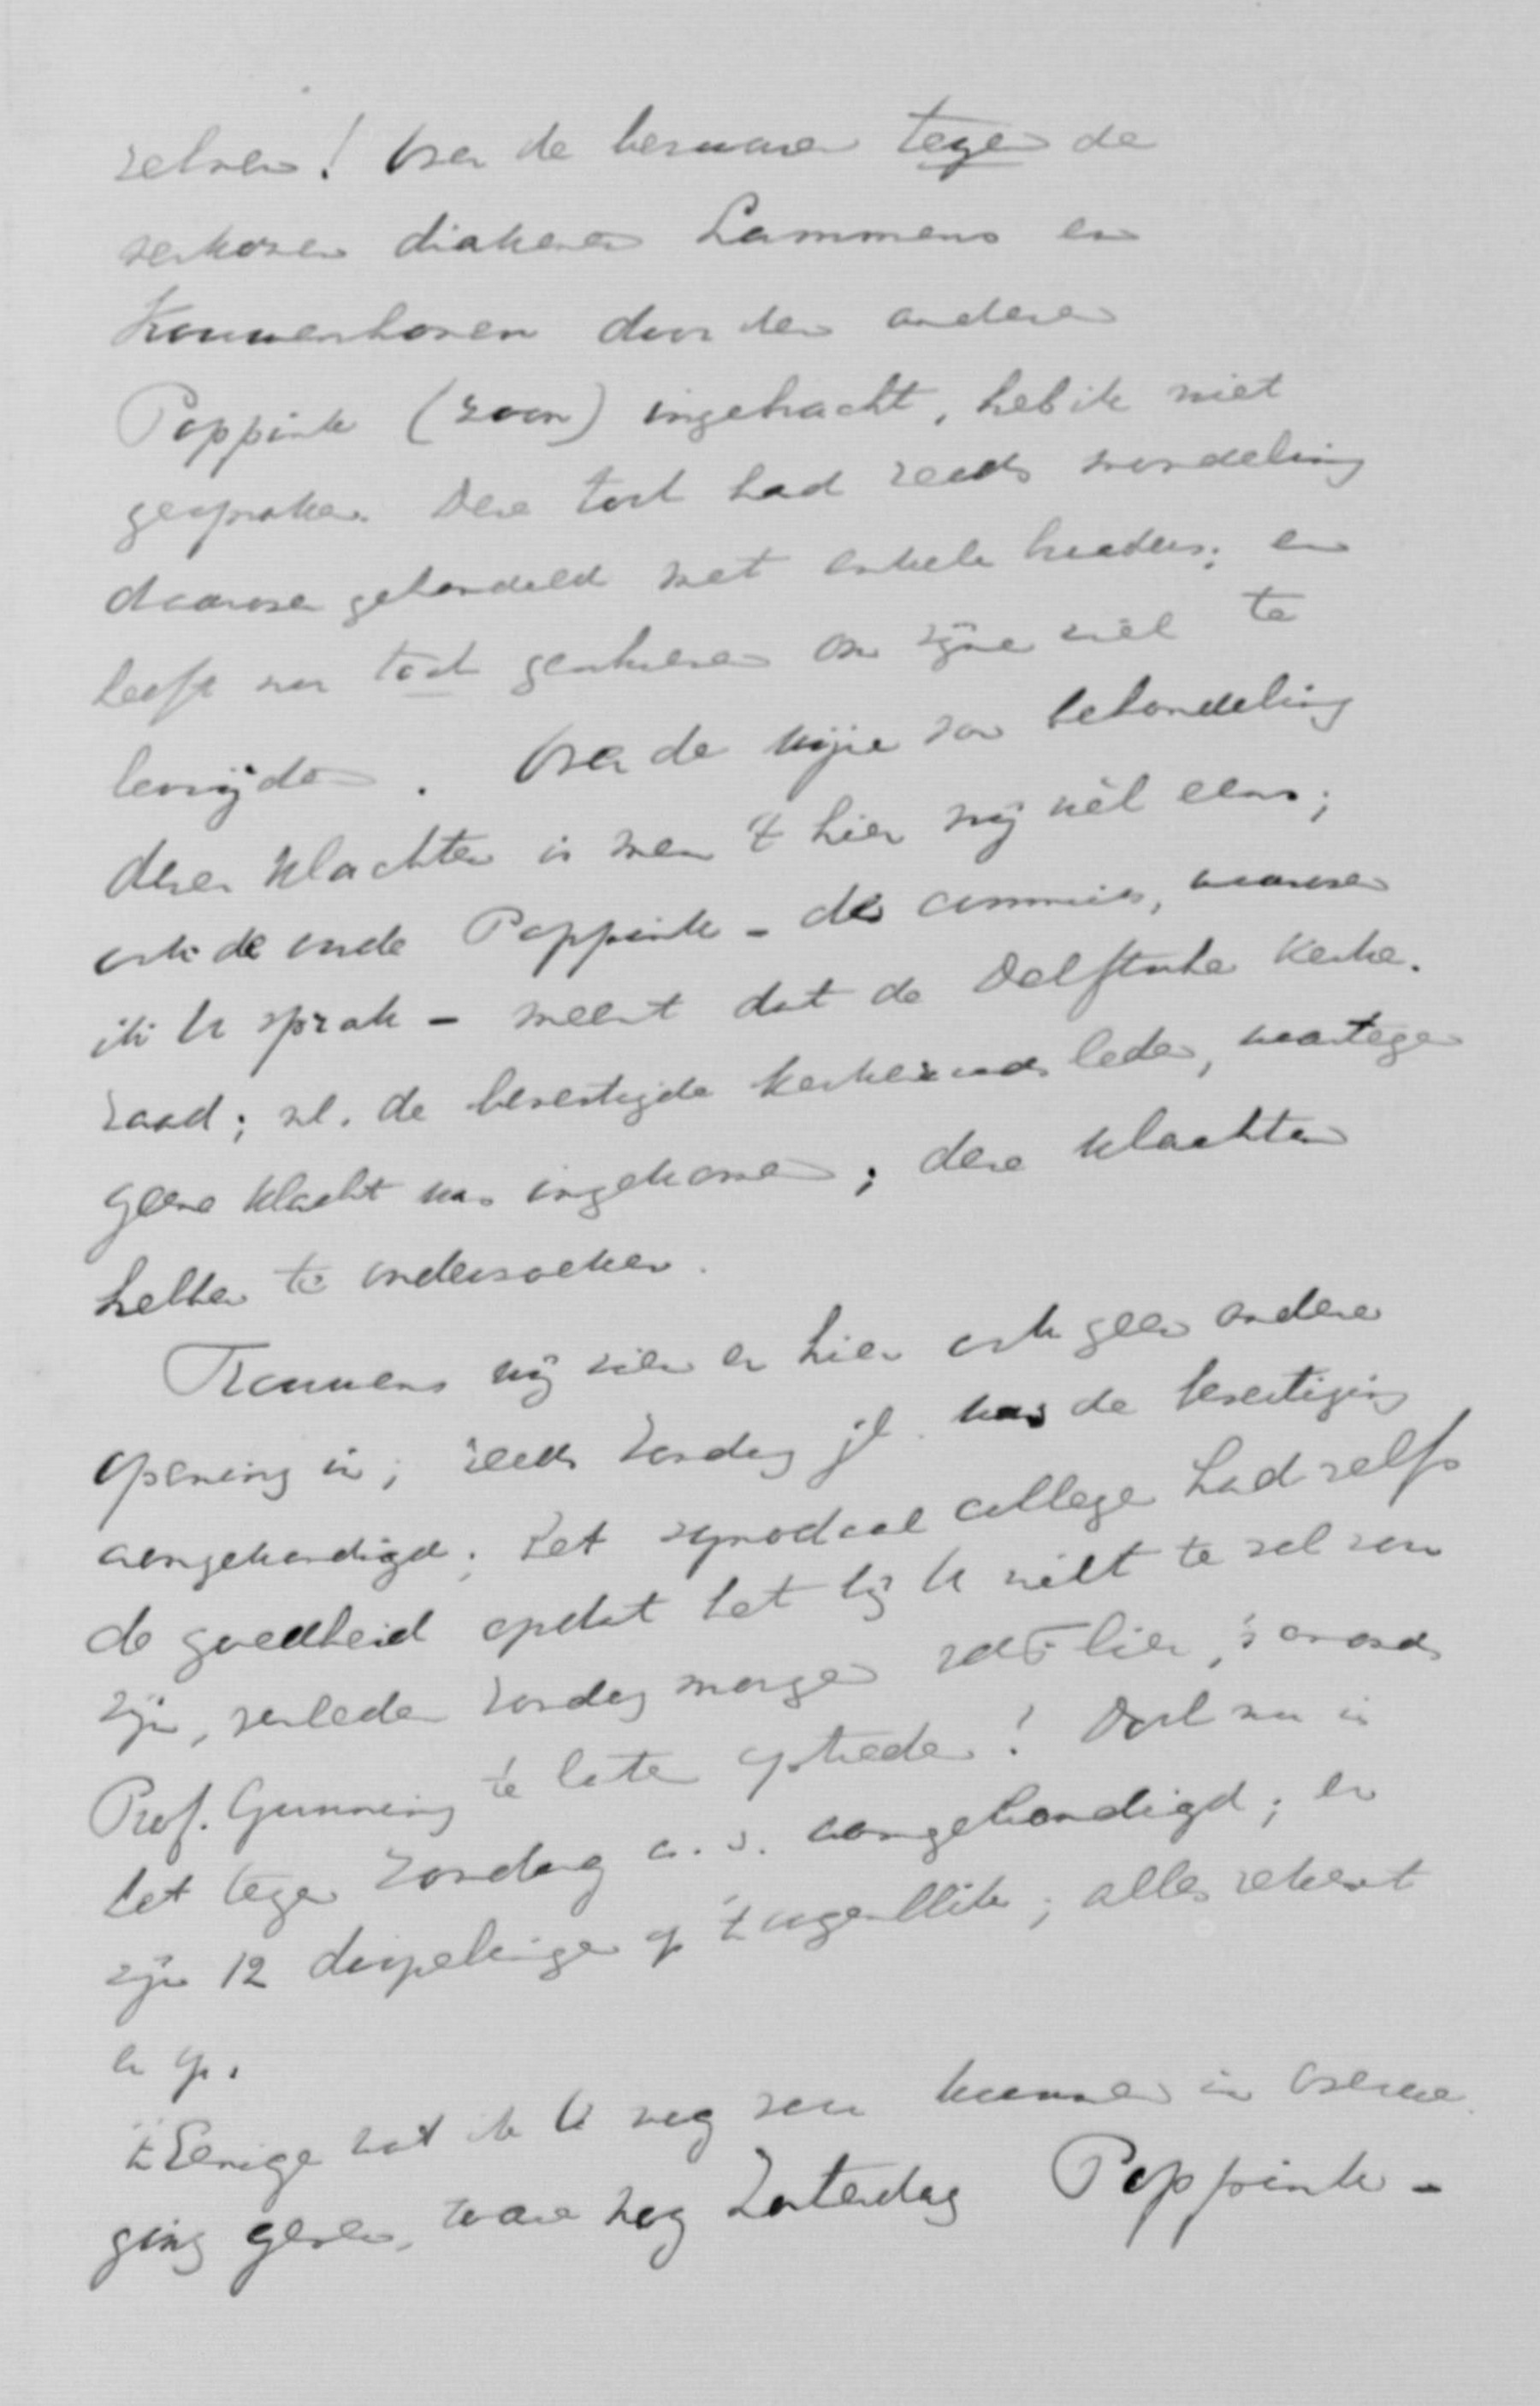 zelven! Over de bezwaren tegen de
verkozen diakenen Lammens en
Kouwenhoven door den anderen
Poppink (zoon) ingebracht, heb ik niet
gesproken. Deze toch had reeds mondeling
daarover gehandeld met enkele broeders; en
heeft nu toch geschreven om zijne ziel te
bevrijden. Over de wijze van behandeling
dezer klachten is men 't hier vrij wèl eens;
ook de oude Poppink - de commies, waarover
ik U sprak - meent dat de Delftsche Kerke-
raad; nl. de bevestigde kerkeraadsleden, waartegen
geene klacht was ingekomen; deze klachten
hebben te onderzoeken.
Trouwens wij zien er hier ook geen andere
opening in; reeds Zondag jl. was de bevestiging
aangekondigd; het synodaal college had zelfs
de goedheid opdat het bij U niet te vol zou
zijn, verleden Zondag morgen hier, 's avonds
Prof. Gunning te laten optreden! Doch nu is
het tegen Zondag a.s. aangekondigd; er
zijn 12 doopelingen op 't oogenblik; alles rekent
er op.
't Eenige wat ik U nog zou kunnen in overwe-
ging geven, ware nog Zaterdag Poppink -